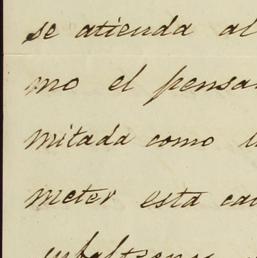 se atienda al
mo el pensa
mitada como
meter esta ca